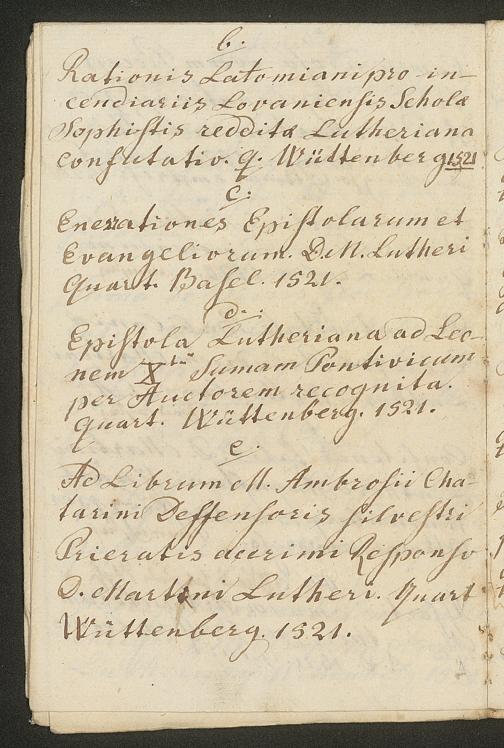 b.
Rationis Latomiani pro in-
cendiariis Lovaniensis Scholæ
Sophistis redditæ Lutheriana
Confutatio. q. Wüttenberg 1521
c.
Enerrationes Epistolarum et
Evangeliorum. D. M. Lutheri
Quart. Basel. 1521.
d.
Epistola Lutheriana ad Leo-
nem X Sumam Pontivicum
per Auctorem recognita.
Quart. Wüttenberg. 1521.
e.
Ad Librum M. Ambrosii Cha-
tarini Deffensoris Silvestri
Prieratis acerimi Responsio
D. Martini Lutheri. Quart
Wüttenberg. 1521.